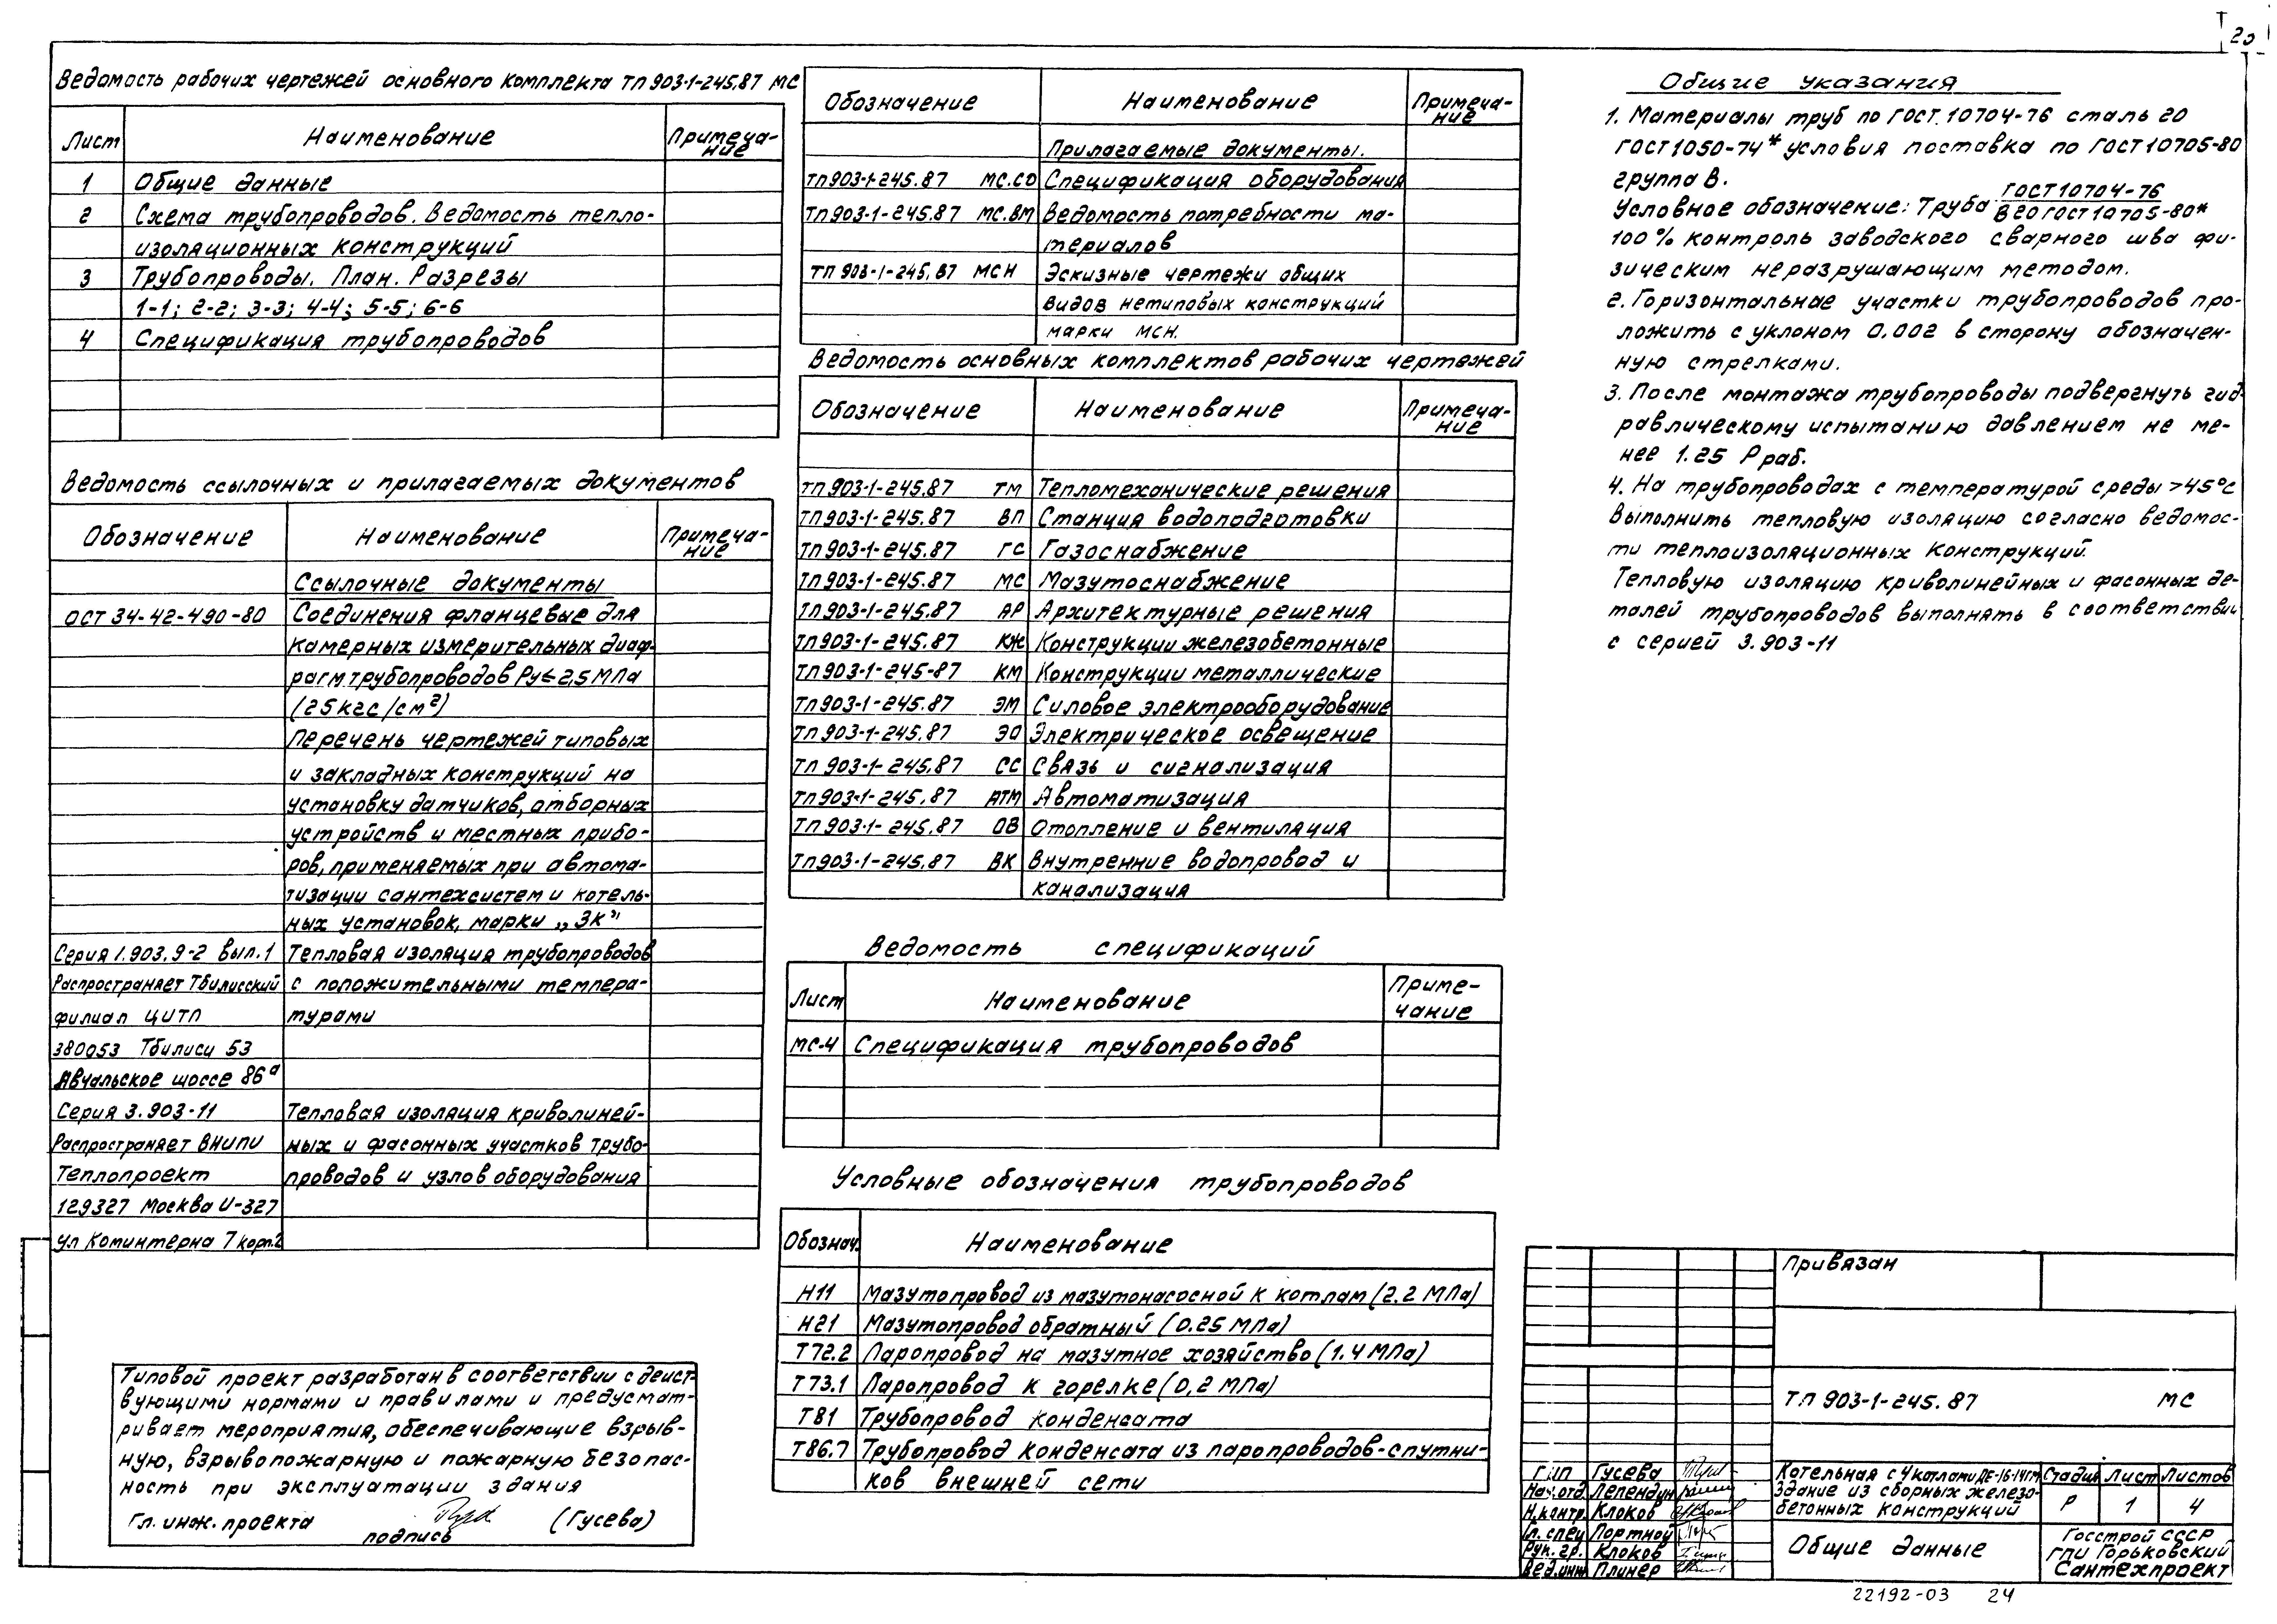 20
Ведомость рабочих чертежей основного комплекта ТП 903-1-245.87 МС
Лист Наименование Примечание
1 Общие данные
2 Схема трубопроводов. Ведомость тепло-
изоляционных конструкций
3 Трубопроводы. План. Разрезы
1-1; 2-2; 3-3; 4-4; 5-5; 6-6
4 Спецификация трубопроводов
Ведомость ссылочных и прилагаемых документов
Обозначение Наименование Примечание
Ссылочные документы
ОСТ 34-42-490-80 Соединения фланцевые для
камерных измерительных диаф-
рагм трубопроводов Ру≤2,5 МПа
(25кгс/см²)
Перечень чертежей типовых
и закладных конструкций на
установку датчиков, отборных
устройств и местных прибо-
ров, применяемых при автома-
тизации сантехсистем и котель-
ных установок, марки „ЗК"
Серия 1.903.9-2 вып.1 Тепловая изоляция трубопроводов
Распространяет Тбилисский с положительными темпера-
филиал ЦИТП турами
380053 Тбилиси 53
Авчальское шоссе 86а
Серия 3.903-11 Тепловая изоляция криволиней-
Распространяет ВНИПИ ных и фасонных участков трубо-
Теплопроект проводов и узлов оборудования
129327 Москва И-327
ул Коминтерна 7 корп.2
Типовой проект разработан в соответствии с дейст-
вующими нормами и правилами и предусмат-
ривает мероприятия, обеспечивающие взрыв-
ную, взрывопожарную и пожарную безопас-
ность при эксплуатации здания
Гл. инж. проекта подпись (Гусева)
Обозначение Наименование Примеча-
ние
Прилагаемые документы.
ТП903-1-245.87 МС.СО Спецификация оборудования
ТП903-1-245.87 МС.ВМ Ведомость потребности ма-
териалов
ТП 903-1-245.87 МСН Эскизные чертежи общих
видов нетиповых конструкций
марки МСН.
Ведомость основных комплектов рабочих чертежей
Обозначение Наименование Примеча-
ние
ТП903-1-245.87 ТМ Тепломеханические решения
ТП903-1-245.87 ВП Станция водоподготовки
ТП903-1-245.87 ГС Газоснабжение
ТП903-1-245.87 МС Мазутоснабжение
ТП903-1-245.87 АР Архитектурные решения
ТП903-1-245.87 КЖ Конструкции железобетонные
ТП903-1-245-87 КМ Конструкции металлические
ТП903-1-245.87 ЭМ Силовое электрооборудование
ТП903-1-245.87 ЭО Электрическое освещение
ТП 903-1-245.87 СС Связь и сигнализация
ТП903-1-245.87 АТМ Автоматизация
ТП903-1-245.87 ОВ Отопление и вентиляция
ТП903-1-245.87 ВК Внутренние водопровод и
канализация
Ведомость спецификаций
Лист Наименование Приме-
чание
МС-4 Спецификация трубопроводов
Условные обозначения трубопроводов
Обознач. Наименование
Н11 Мазутопровод из мазутонасосной к котлам (2.2 МПа)
Н21 Мазутопровод обратный (0.25 МПа)
Т72.2 Паропровод на мазутное хозяйство (1.4 МПа)
Т73.1 Паропровод к горелке (0,2 МПа)
Т81 Трубопровод конденсата
Т86.7 Трубопровод конденсата из паропроводов-спутни-
ков внешней сети
Общие указания
1. Материалы труб по ГОСТ 10704-76 сталь 20
ГОСТ1050-74* условия поставка по ГОСТ10705-80
группа В.
Условное обозначение: Труба ГОСТ10704-76
В20ГОСТ10705-80*
100% контроль заводского сварного шва фи-
зическим неразрушающим методом.
2. Горизонтальнае участки трубопроводов про-
ложить с уклоном 0.002 в сторону обозначен-
ную стрелками.
3. После монтажа трубопроводы подвергнуть гид-
равлическому испытанию давлением не ме-
нее 1.25 Рраб.
4. На трубопроводах с температурой среды >45°С
выполнить тепловую изоляцию согласно ведомос-
ти теплоизоляционных конструкций.
Тепловую изоляцию криволинейных и фасонных де-
талей трубопроводов выполнять в соответствии
с серией 3.903-11
Привязан
ТП 903-1-245.87 МС
ГИП Гусева
Нач.отд. Лепендин
Н.контр. Клоков
Гл. спец Портной
Рук. гр. Клоков
Вед.инж Плинер
Котельная с 4 котлами ДЕ-16-14ГМ
Здание из сборных железо-
бетонных конструкций
Стадия Лист Листов
Р 1 4
Общие данные
Госстрой СССР
ГПИ Горьковский
Сантехпроект
22192-03 24